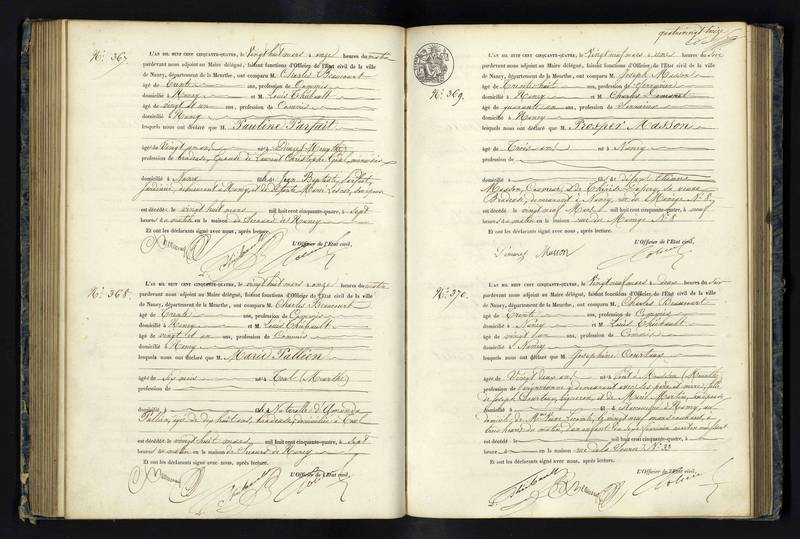 N.º 367.
L'AN MIL HUIT CENT CINQUANTE-QUATRE, le vingt huit mars à onze heures du matin
pardevant nous adjoint au Maire délégué, faisant fonctions d'Officier de l'Etat civil de la ville
de Nancy, département de la Meurthe, ont comparu M. Charles Beaucourt
âgé de trente ans, profession de Commis
domicilié à Nancy et M. Louis Thiébault
âgé de vingt et un ans, profession de Commis
domicilié à Nancy
lesquels nous ont déclaré que M. Pauline Parfait
âgée de Vingt un ans
profession de brodeuse, épouse de Laurent Christophe
domicilié à Nancy Jean Baptiste Parfait
jardinier, demeurant à Nancy, et de défunte Marie
est décédé le vingt huit mars mil huit cent cinquante-quatre, à sept
heures du matin en la maison de Secours de Nancy
Et ont les déclarants signé avec nous, après lecture.
L'Officier de l'Etat civil,
Beaucourt Thiébault
N.º 368.
L'AN MIL HUIT CENT CINQUANTE-QUATRE, le vingt huit mars à onze heures du matin
pardevant nous adjoint au Maire délégué, faisant fonctions d'Officier de l'Etat civil de la ville
de Nancy, département de la Meurthe, ont comparu M. Charles Beaucourt
âgé de trente ans, profession de Commis
domicilié à Nancy et M. Louis Thiébault
âgé de vingt et un ans, profession de Commis
domicilié à Nancy
lesquels nous ont déclaré que M. Marie Tallion
âgée de Six mois née à Toul (Meurthe)
profession de
domicilié à Naturelle d'Amanda
Tallion, âgée de dix huit ans, brodeuse, domiciliée à Toul
est décédé le vingt huit mars mil huit cent cinquante-quatre, à sept
heures du matin en la maison de Secours de Nancy
Et ont les déclarants signé avec nous, après lecture.
L'Officier de l'Etat civil,
Thiébault
Beaucourt
quatrevingt treize
N.º 369.
L'AN MIL HUIT CENT CINQUANTE-QUATRE, le Vingt neuf mars à une heures du soir
pardevant nous adjoint au Maire délégué, faisant fonctions d'Officier de l'Etat civil de la ville
de Nancy, département de la Meurthe, ont comparu M. Joseph Masson
âgé de trente huit ans, profession de Serrurier
domicilié à Nancy et M. Charles
âgé de quarante un ans, profession de
domicilié à Nancy
lesquels nous ont déclaré que M. Prosper Masson
âgé de Trois ans né à Nancy
profession de
domicilié à fils de défunt Etienne
Masson, et de Thérèse sa veuve
brodeuse, demeurant à Nancy, rue du Manège N.º 8
est décédé le vingt neuf Mars mil huit cent cinquante-quatre, à neuf
heures du matin en la maison rue du Manège N.º 8
Et ont les déclarants signé avec nous, après lecture.
L'Officier de l'Etat civil,
Masson
N.º 370.
L'AN MIL HUIT CENT CINQUANTE-QUATRE, le Vingt neuf mars à deux heures du soir
pardevant nous adjoint au Maire délégué, faisant fonctions d'Officier de l'Etat civil de la ville
de Nancy, département de la Meurthe, ont comparu M. Charles Beaucourt
âgé de trente ans, profession de Commis
domicilié à Nancy et M. Louis Thiébault
âgé de vingt et un ans, profession de Commis
domicilié à Nancy
lesquels nous ont déclaré que M. Joséphine Courteau
âgée de Vingt deux ans née à Pont à Mousson (Meurthe)
profession de vigneronne y demeurant avec ses père et mère, fille
de Joseph Courteau, vigneron et de Marie Martin, son épouse
Nancy, au
domicile de M.me vingt neuf mars courant, à
trois heures du matin, d'un enfant du sexe féminin
est décédé le mil huit cent cinquante-quatre, à
heures en la maison rue de la N.º 33
Et ont les déclarants signé avec nous, après lecture.
L'Officier de l'Etat civil,
Thiébault Beaucourt